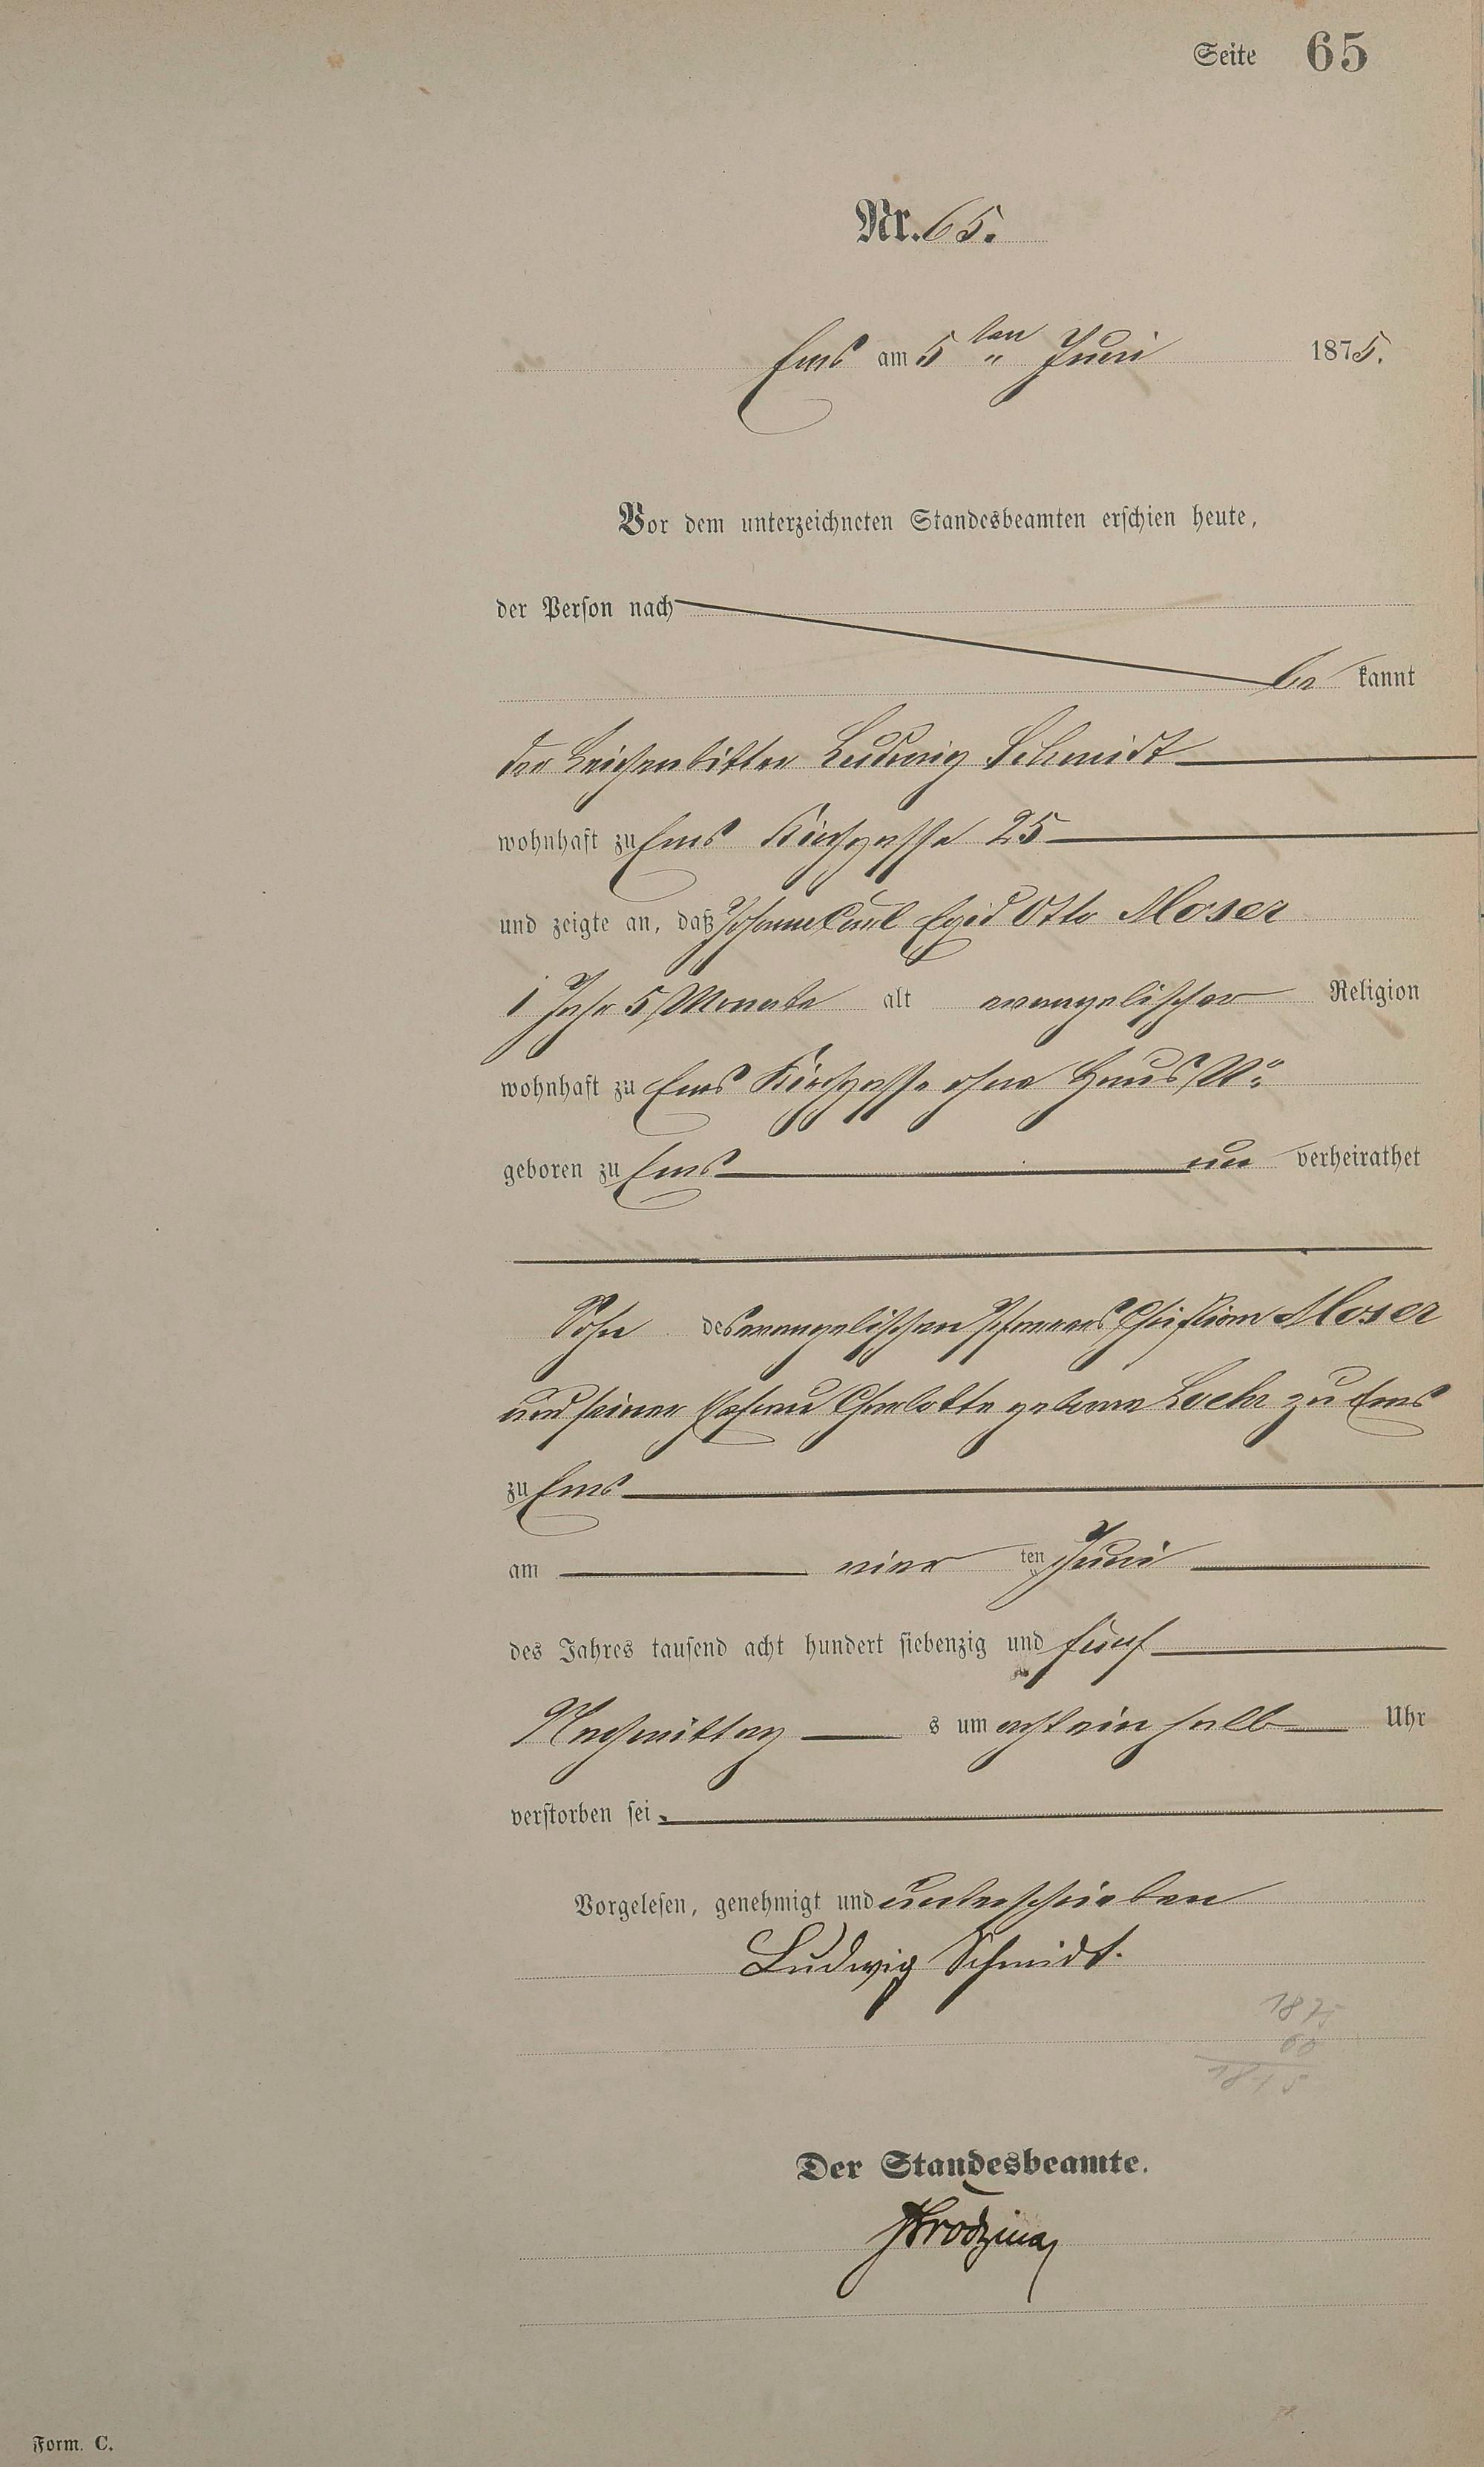 Seite 65
Nr. 65.
Ems am 5ten Juni 1875.
Vor dem unterzeichneten Standesbeamten erschien heute,
der Person nach
be kannt
der Leichenbitter Ludwig Schmidt
wohnhaft zu Ems Kirchgasse 25
und zeigte an, daß Johann Carl Egid Otto Moser
1 Jahr 5 Monate alt evangelischer Religion
wohnhaft zu Ems Kirchgasse ohne Haus No
geboren zu Ems un verheirathet
Sohn des evangelischen Pfarrers Christian Moser
und seiner Ehefrau Charlotte geborne Loehr zu Ems
zu Ems
am vier ten Juni
des Jahres tausend acht hundert siebenzig und fünf
Nachmittag s um acht ein halb Uhr
verstorben sei.
Vorgelesen, genehmigt und unterschrieben
Ludwig Schmidt.
1875
60
1815
Der Standesbeamte.
Form. C.